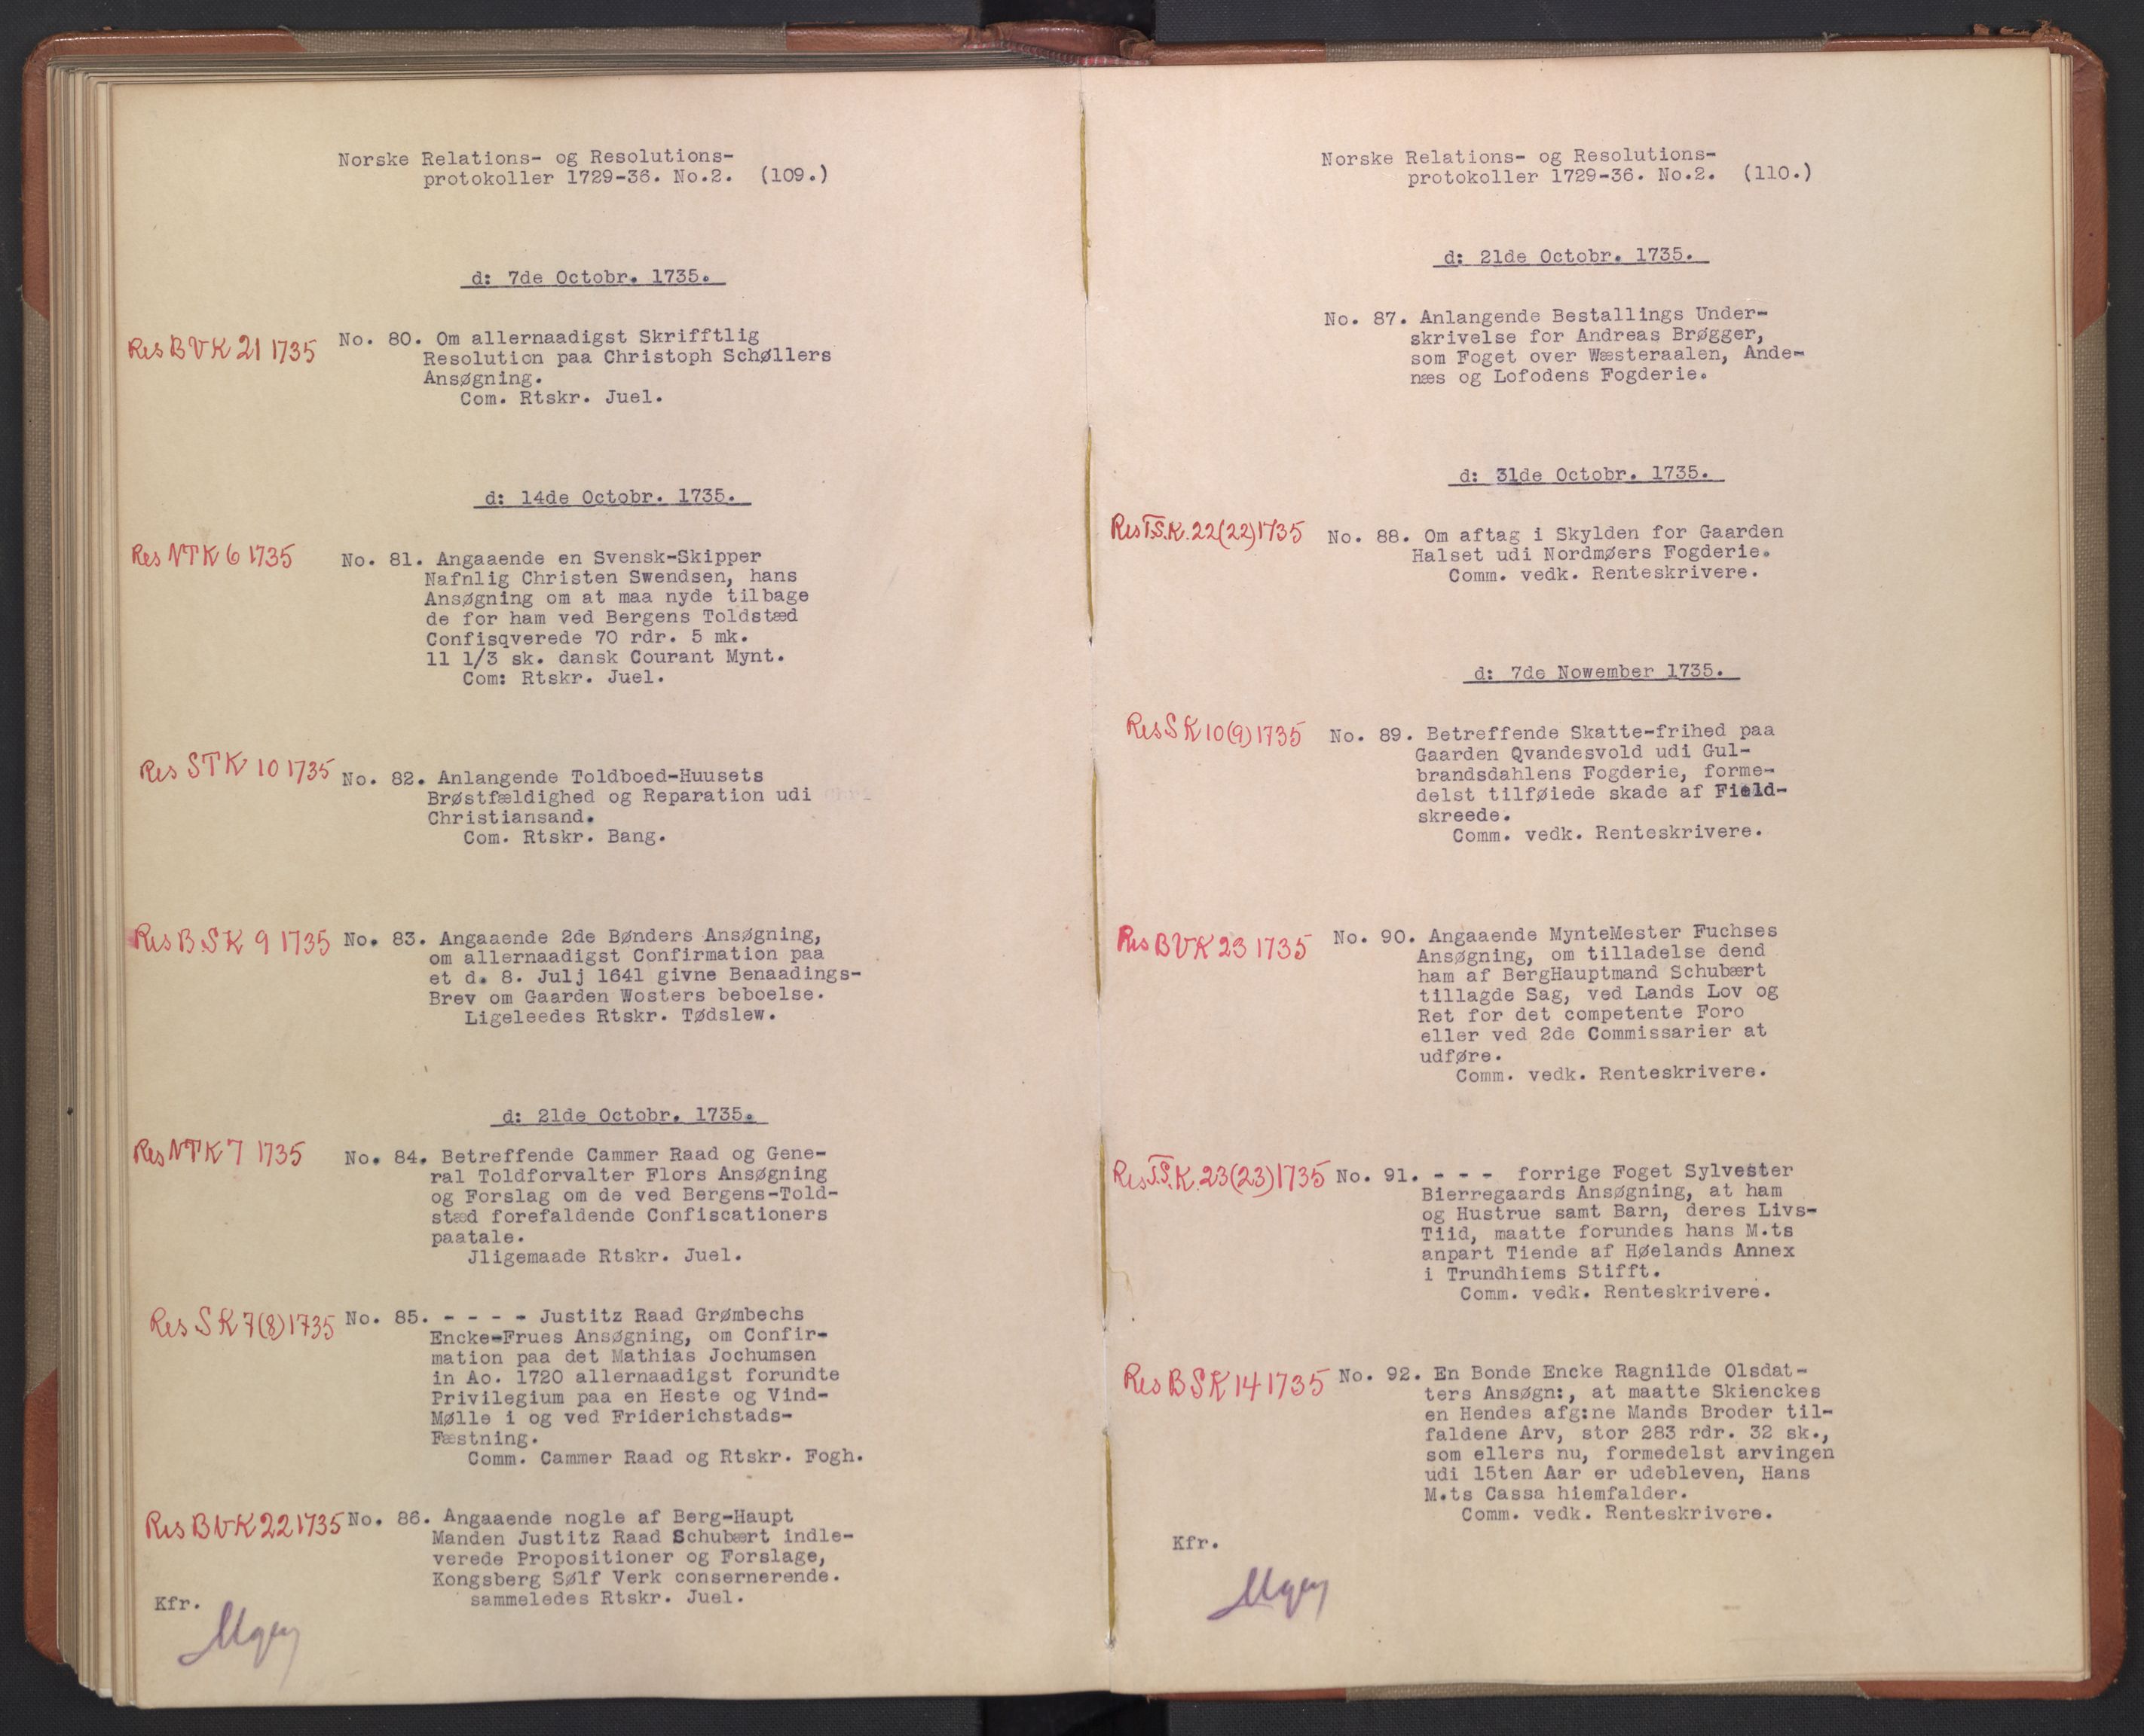 Norske Relations- og Resolutions-
protokoller 1729-36. No.2. (109.)
d: 7de Octobr. 1735.
Res BVK 21 1735
No. 80. Om allernaadigst Skrifftlig
Resolution paa Christoph Schøllers
Ansøgning.
Com. Rtskr. Juel.
d: 14de Octobr. 1735.
Res NTK 6 1735
No. 81. Angaaende en Svensk-Skipper
Nafnlig Christen Swendsen, hans
Ansøgning om at maa nyde tilbage
de for ham ved Bergens Toldstæd
Confisqverede 70 rdr. 5 mk.
11 1/3 sk. dansk Courant Mynt.
Com: Rtskr. Juel.
Res STK 10 1735
No. 82. Anlangende Toldboed-Huusets
Brøstfældighed og Reparation udi
Christiansand.
Com. Rtskr. Bang.
Res B.SK 9 1735
No. 83. Angaaende 2de Bønders Ansøgning,
om allernaadigst Confirmation paa
et d. 8. Julj 1641 givne Benaadings-
Brev om Gaarden Wosters beboelse.
Ligeleedes Rtskr. Tødslew.
d: 21de Octobr. 1735.
Res NTK 7 1735
No. 84. Betreffende Cammer Raad og Gene-
ral Toldforvalter Flors Ansøgning
og Forslag om de ved Bergens-Told-
stæd forefaldende Confiscationers
paatale.
Jligemaade Rtskr. Juel.
Res SK 7(8) 1735
No. 85. - - - - Justitz Raad Grømbechs
Encke-Frues Ansøgning, om Confir-
mation paa det Mathias Jochumsen
in Ao. 1720 allernaadigst forundte
Privilegium paa en Heste og Vind-
Mølle i og ved Friderichstads-
Fæstning.
Comm. Cammer Raad og Rtskr. Fogh.
Res BVK 22 1735
No. 86. Angaaende nogle af Berg-Haupt
Manden Justitz Raad Schubært indle-
verede Propositioner og Forslage,
Kongsberg Sølf Verk consernerende.
sammeledes Rtskr. Juel.
Kfr.
Norske Relations- og Resolutions-
protokoller 1729-36. No.2. (110.)
d: 21de Octobr. 1735.
No. 87. Anlangende Bestallings Under-
skrivelse for Andreas Brøgger,
som Foget over Wæsteraalen, Ande-
næs og Lofodens Fogderie.
d: 31de Octobr. 1735.
Res T.S.K. 22(22) 1735
No. 88. Om aftag i Skylden for Gaarden
Halset udi Nordmøers Fogderie.
Comm. vedk. Renteskrivere.
d: 7de Nowember 1735.
Res SK 10(9) 1735
No. 89. Betreffende Skatte-frihed paa
Gaarden Qvandesvold udi Gul-
brandsdahlens Fogderie, forme-
delst tilføiede skade af Field-
skreede.
Comm. vedk. Renteskrivere.
Res BVK 23 1735
No. 90. Angaaende MynteMester Fuchses
Ansøgning, om tilladelse dend
ham af BergHauptmand Schubært
tillagde Sag, ved Lands Lov og
Ret for det competente Foro
eller ved 2de Commissarier at
udføre.
Comm. vedk. Renteskrivere.
Res T.S.K. 23(23) 1735
No. 91. - - - forrige Foget Sylvester
Bierregaards Ansøgning, at ham
og Hustrue samt Barn, deres Livs-
Tiid, maatte forundes hans M.ts
anpart Tiende af Høelands Annex
i Trundhiems Stifft.
Comm. vedk. Renteskrivere.
Res B SK 14 1735
No. 92. En Bonde Encke Ragnilde Olsdat-
ters Ansøgn:, at maatte Skienckes
en Hendes afg:ne Mands Broder til-
faldene Arv, stor 283 rdr. 32 sk.,
som ellers nu, formedelst arvingen
udi 15ten Aar er udebleven, Hans
M.ts Cassa hiemfalder.
Comm. vedk. Renteskrivere.
Kfr.